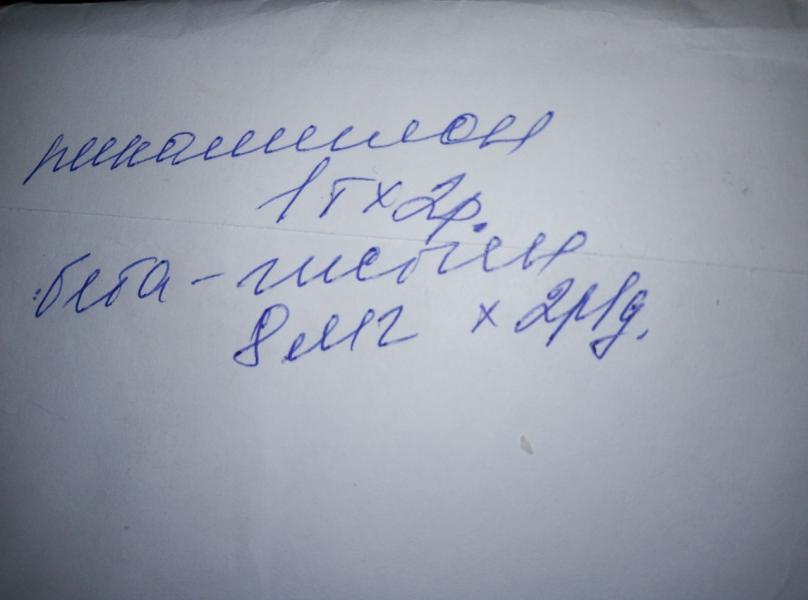 пикамилон
1т х 2р.
бета - гистин
8 мг х 2р/д.